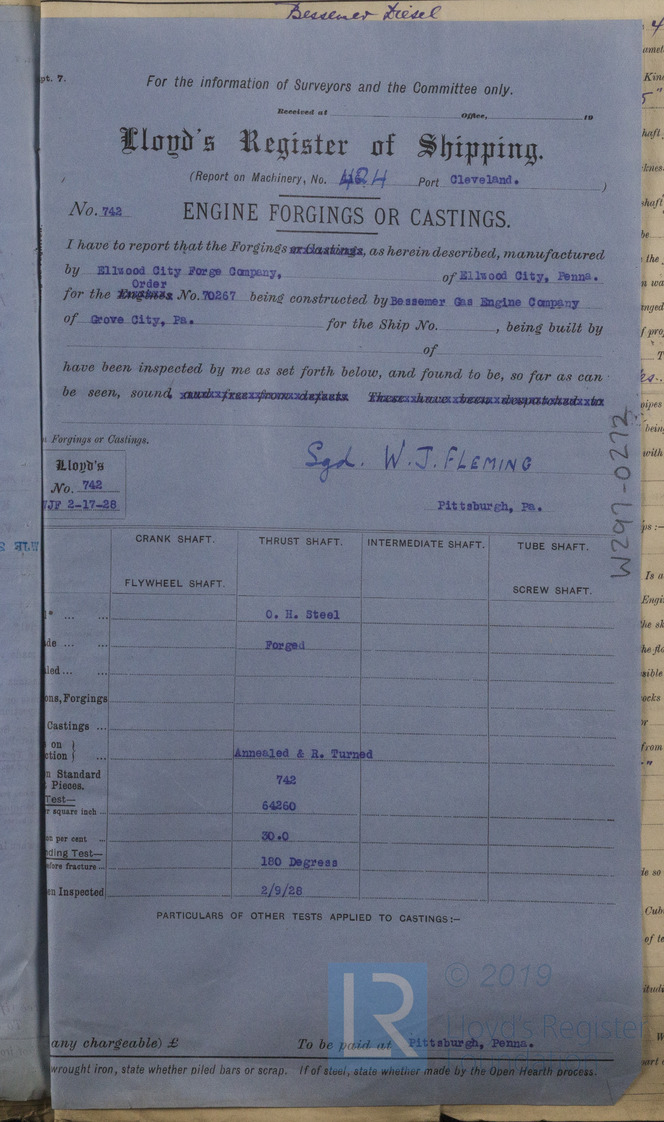 Bessemer Diesel
pt. 7.
For the information of Surveyors and the Committee only.
Received at Office, 19
Lloyd's Register of Shipping.
(Report on Machinery, No. 484 Port Cleveland. )
No. 742 ENGINE FORGINGS OR CASTINGS.
I have to report that the Forgings or Castings, as herein described, manufactured
by Ellwood City Forge Company, of Ellwood City, Penna.
Order
for the Engines No. 70267 being constructed by Bessemer Gas Engine Company
of Grove City, Pa. for the Ship No. , being built by
of
have been inspected by me as set forth below, and found to be, so far as can
be seen, sound, and free from defects. These have been despatched to
Forgings or Castings.
Sgd. W. J. FLEMING
Lloyd's
No. 742
WJF 2-17-28
Pittsburgh, Pa.
W297-0272
CRANK SHAFT. THRUST SHAFT. INTERMEDIATE SHAFT. TUBE SHAFT.
FLYWHEEL SHAFT. SCREW SHAFT.
O. H. Steel
Forged
ons, Forgings
Castings ...
on
ction Annealed & R. Turned
Standard
Pieces. 742
Test—
r square inch ... 64260
on per cent ... 30.0
ding Test—
efore fracture ... 180 Degress
en Inspected 2/9/28
PARTICULARS OF OTHER TESTS APPLIED TO CASTINGS:—
© 2019
LR
Lloyd's Register
Foundation
any chargeable) £ To be paid at Pittsburgh, Penna.
wrought iron, state whether piled bars or scrap. If of steel, state whether made by the Open Hearth process.